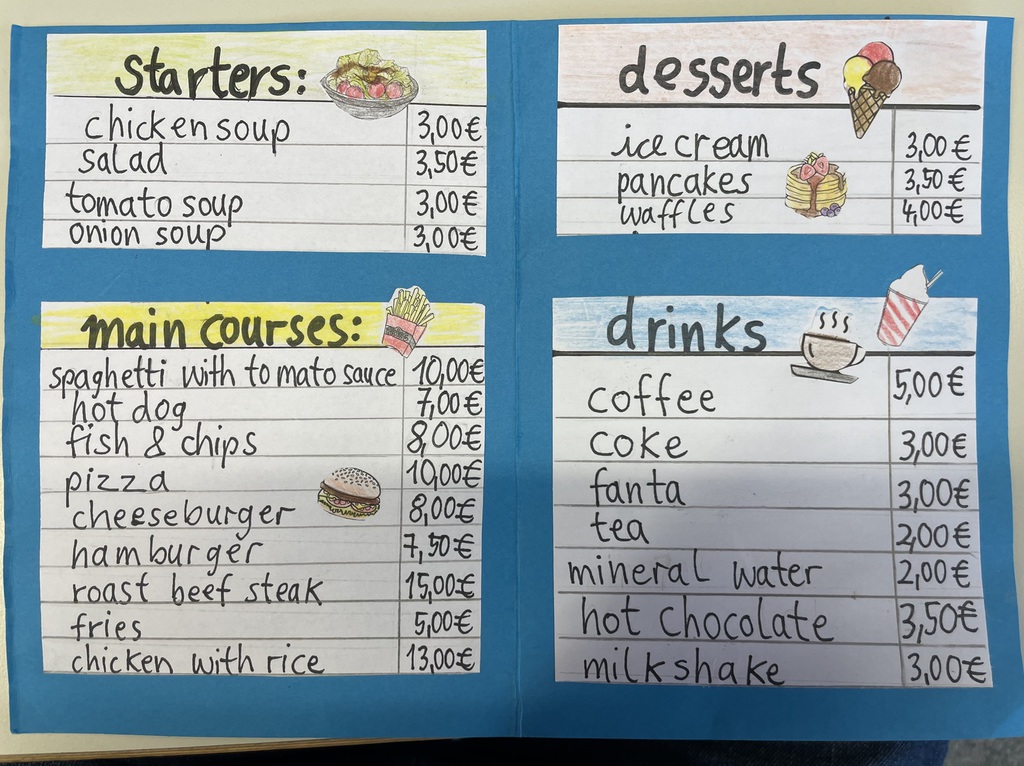 starters:
chicken soup 3,00€
salad 3,50€
tomato soup 3,00€
onion soup 3,00€
main courses:
spaghetti with tomato sauce 10,00€
hot dog 7,00€
fish & chips 8,00€
pizza 10,00€
cheeseburger 8,00€
hamburger 7,50€
roast beef steak 15,00€
fries 5,00€
chicken with rice 13,00€
desserts
ice cream 3,00€
pancakes 3,50€
waffles 4,00€
drinks
coffee 5,00€
coke 3,00€
fanta 3,00€
tea 2,00€
mineral water 2,00€
hot chocolate 3,50€
milkshake 3,00€